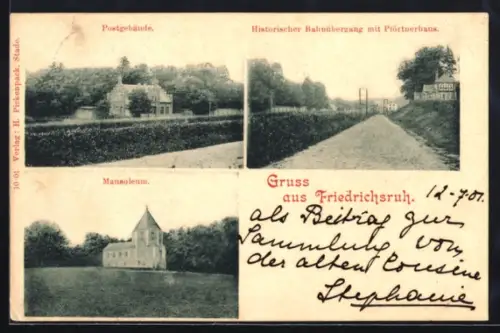 Postgebäude.
Historischer Bahnübergang mit Pförtnerhaus.
10 01 Verlag: H. Pickenpack, Stade.
Mausoleum.
Gruss
aus Friedrichsruh.
12-7.01.
als Beitrag zur
Sammlung von
der alten Cousine
Stephanie